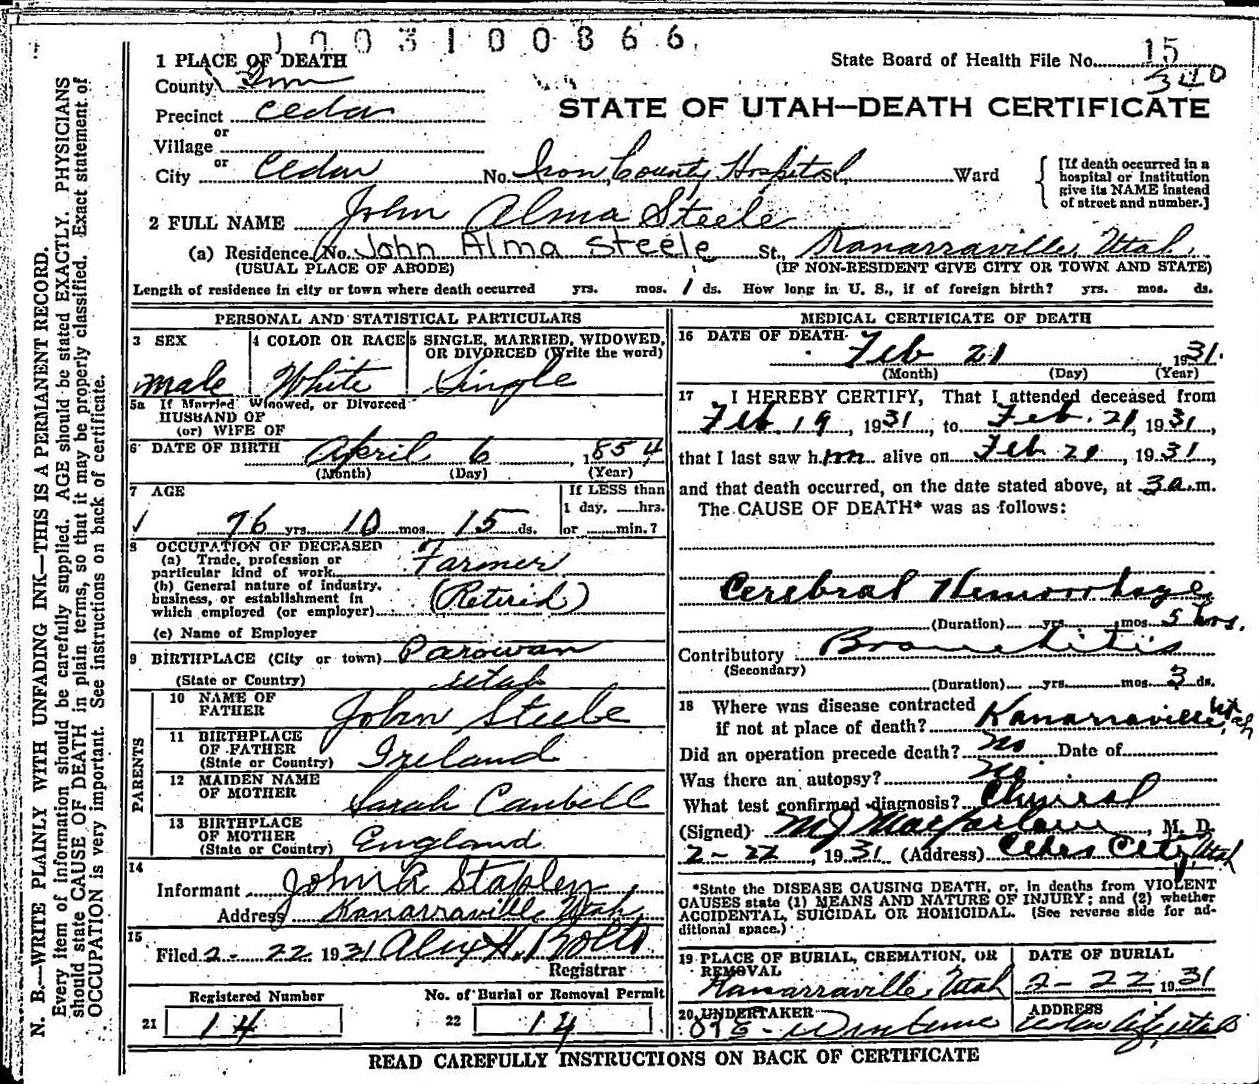 1003100866
1 PLACE OF DEATH
State Board of Health File No. 15
340
County Iron
STATE OF UTAH—DEATH CERTIFICATE
Precinct Cedar
or
Village
or
City Cedar No. Iron County Hospital St., Ward
[If death occurred in a
hospital or institution
give its NAME instead
of street and number.]
2 FULL NAME John Alma Steele
(a) Residence No. John Alma Steele St., Kanarraville, Utah
(USUAL PLACE OF ABODE) (IF NON-RESIDENT GIVE CITY OR TOWN AND STATE)
Length of residence in city or town where death occurred yrs. mos. 1 ds. How long in U. S., if of foreign birth? yrs. mos. ds.
PERSONAL AND STATISTICAL PARTICULARS
3 SEX
male
4 COLOR OR RACE
White
5 SINGLE, MARRIED, WIDOWED,
OR DIVORCED (Write the word)
Single
5a If Married Widowed, or Divorced
HUSBAND OF
(or) WIFE OF
6 DATE OF BIRTH April 6 1854
(Month) (Day) (Year)
7 AGE
76 yrs. 10 mos. 15 ds.
If LESS than
1 day, hrs.
or min.?
8 OCCUPATION OF DECEASED
(a) Trade, profession or
particular kind of work Farmer
(b) General nature of industry,
business, or establishment in
which employed (or employer) (Retired)
(c) Name of Employer
9 BIRTHPLACE (City or town) Parowan
(State or Country) Utah
PARENTS
10 NAME OF
FATHER John Steele
11 BIRTHPLACE
OF FATHER
(State or Country) Ireland
12 MAIDEN NAME
OF MOTHER Sarah Canbell
13 BIRTHPLACE
OF MOTHER
(State or Country) England
14
Informant John R Stapley
Address Kanarraville, Utah
15
Filed 2-22 1931
Registrar
Registered Number
21 14
No. of Burial or Removal Permit
22 14
MEDICAL CERTIFICATE OF DEATH
16 DATE OF DEATH
Feb 21 1931
(Month) (Day) (Year)
17 I HEREBY CERTIFY, That I attended deceased from
Feb 19, 1931, to Feb. 21, 1931,
that I last saw him alive on Feb 21, 1931,
and that death occurred, on the date stated above, at 3 a.m.
The CAUSE OF DEATH* was as follows:
Cerebral Hemorrhage
(Duration) yrs. mos. 5 hrs.
Contributory Bronchitis
(Secondary)
(Duration) yrs. mos. 3 ds.
18 Where was disease contracted
if not at place of death? Kanarraville, Utah
Did an operation precede death? no Date of
Was there an autopsy? no
What test confirmed diagnosis? Clinical
(Signed) M J Macfarlane, M. D.
2-22, 1931 (Address) Cedar City, Utah
*State the DISEASE CAUSING DEATH, or, in deaths from VIOLENT
CAUSES state (1) MEANS AND NATURE OF INJURY; and (2) whether
ACCIDENTAL, SUICIDAL OR HOMICIDAL. (See reverse side for ad-
ditional space.)
19 PLACE OF BURIAL, CREMATION, OR
REMOVAL
Kanarraville, Utah
DATE OF BURIAL
2-22 1931
20 UNDERTAKER
ADDRESS
Cedar City, Utah
READ CAREFULLY INSTRUCTIONS ON BACK OF CERTIFICATE
N. B.—WRITE PLAINLY WITH UNFADING INK—THIS IS A PERMANENT RECORD.
Every item of information should be carefully supplied. AGE should be stated EXACTLY. PHYSICIANS
should state CAUSE OF DEATH in plain terms, so that it may be properly classified. Exact statement of
OCCUPATION is very important. See instructions on back of certificate.